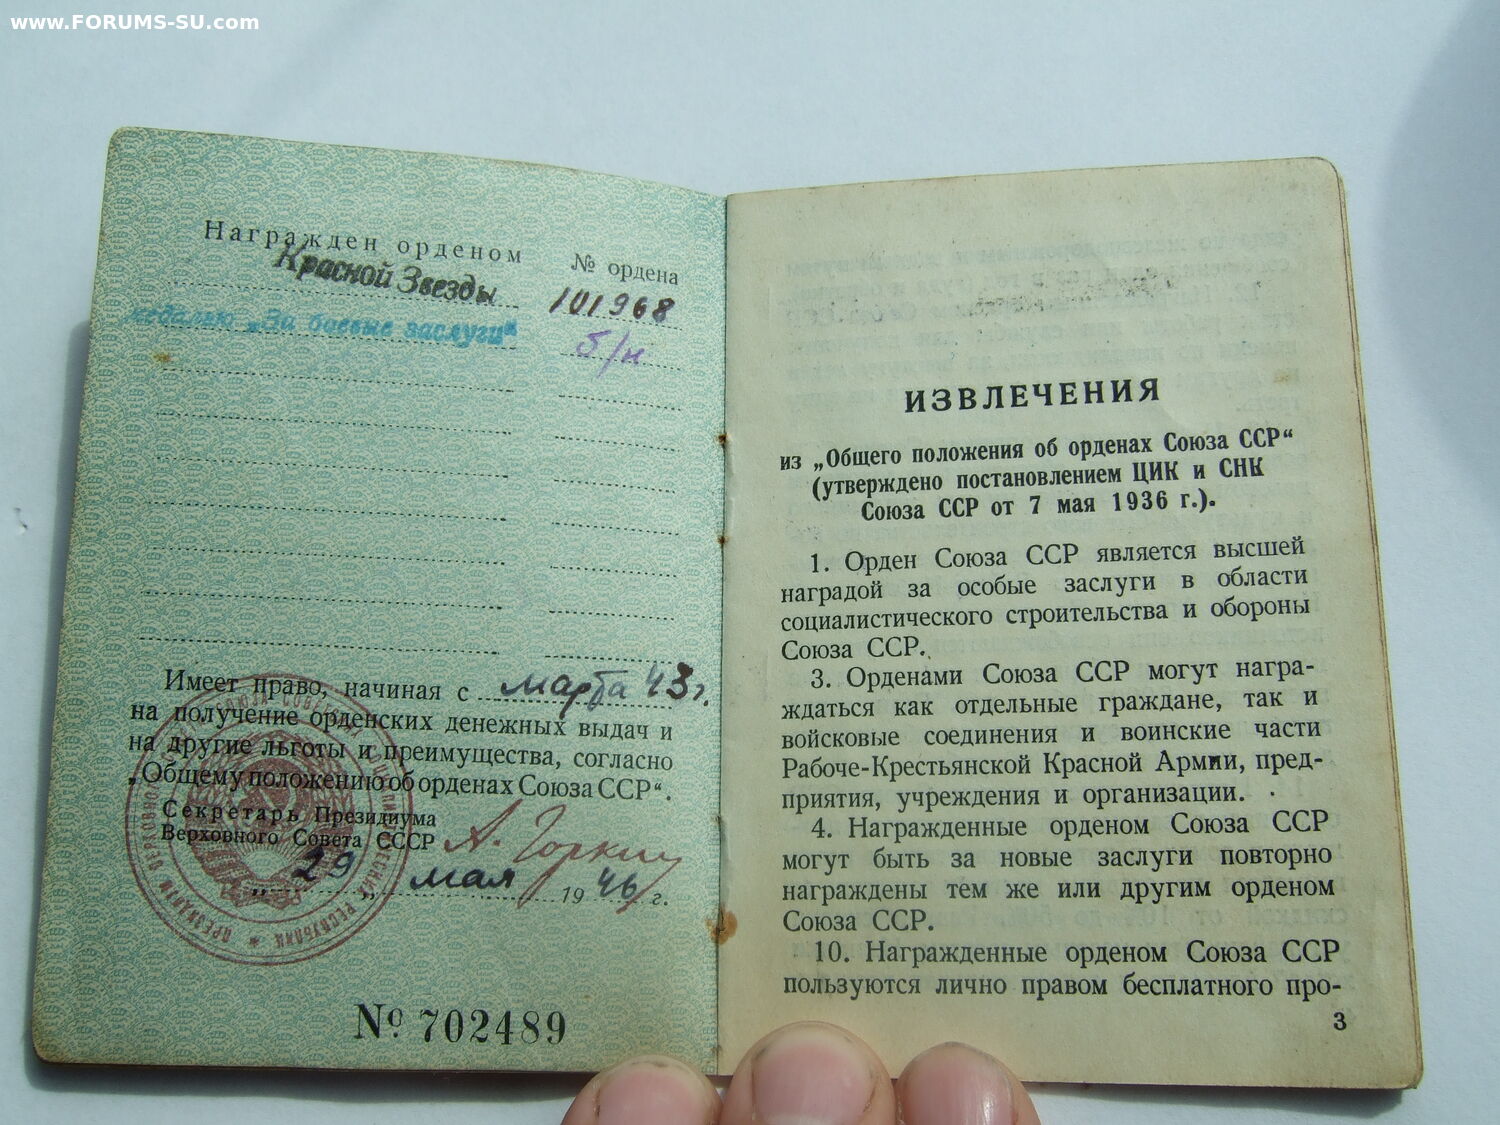 www.FORUMS-SU.com
Награжден орденом № ордена
Красной Звезды 101968
медалью „За боевые заслуги“ б/н
Имеет право, начиная с марта 43 г.
на получение орденских денежных выдач и
на другие льготы и преимущества, согласно
„Общему положению об орденах Союза ССР“.
Секретарь Президиума
Верховного Совета СССР А. Горкин
„29 „ мая 1946 г.
№ 702489
ИЗВЛЕЧЕНИЯ
из „Общего положения об орденах Союза ССР“
(утверждено постановлением ЦИК и СНК
Союза ССР от 7 мая 1936 г.).
1. Орден Союза ССР является высшей
наградой за особые заслуги в области
социалистического строительства и обороны
Союза ССР.
3. Орденами Союза ССР могут награ-
ждаться как отдельные граждане, так и
войсковые соединения и воинские части
Рабоче-Крестьянской Красной Армии, пред-
приятия, учреждения и организации.
4. Награжденные орденом Союза ССР
могут быть за новые заслуги повторно
награждены тем же или другим орденом
Союза ССР.
10. Награжденные орденом Союза ССР
пользуются лично правом бесплатного про-
3